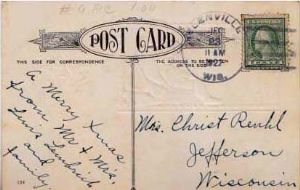 # G PC 1.00
POST CARD
THIS SIDE FOR CORRESPONDENCE
THE ADDRESS TO BE
ON THIS SIDE
ENVILLE
DEC
11 AM
1922
WIS.
A Merry Xmas
From Mr & Mrs.
and
family
Mrs. Christ Renkl
Jefferson
Wisconsin